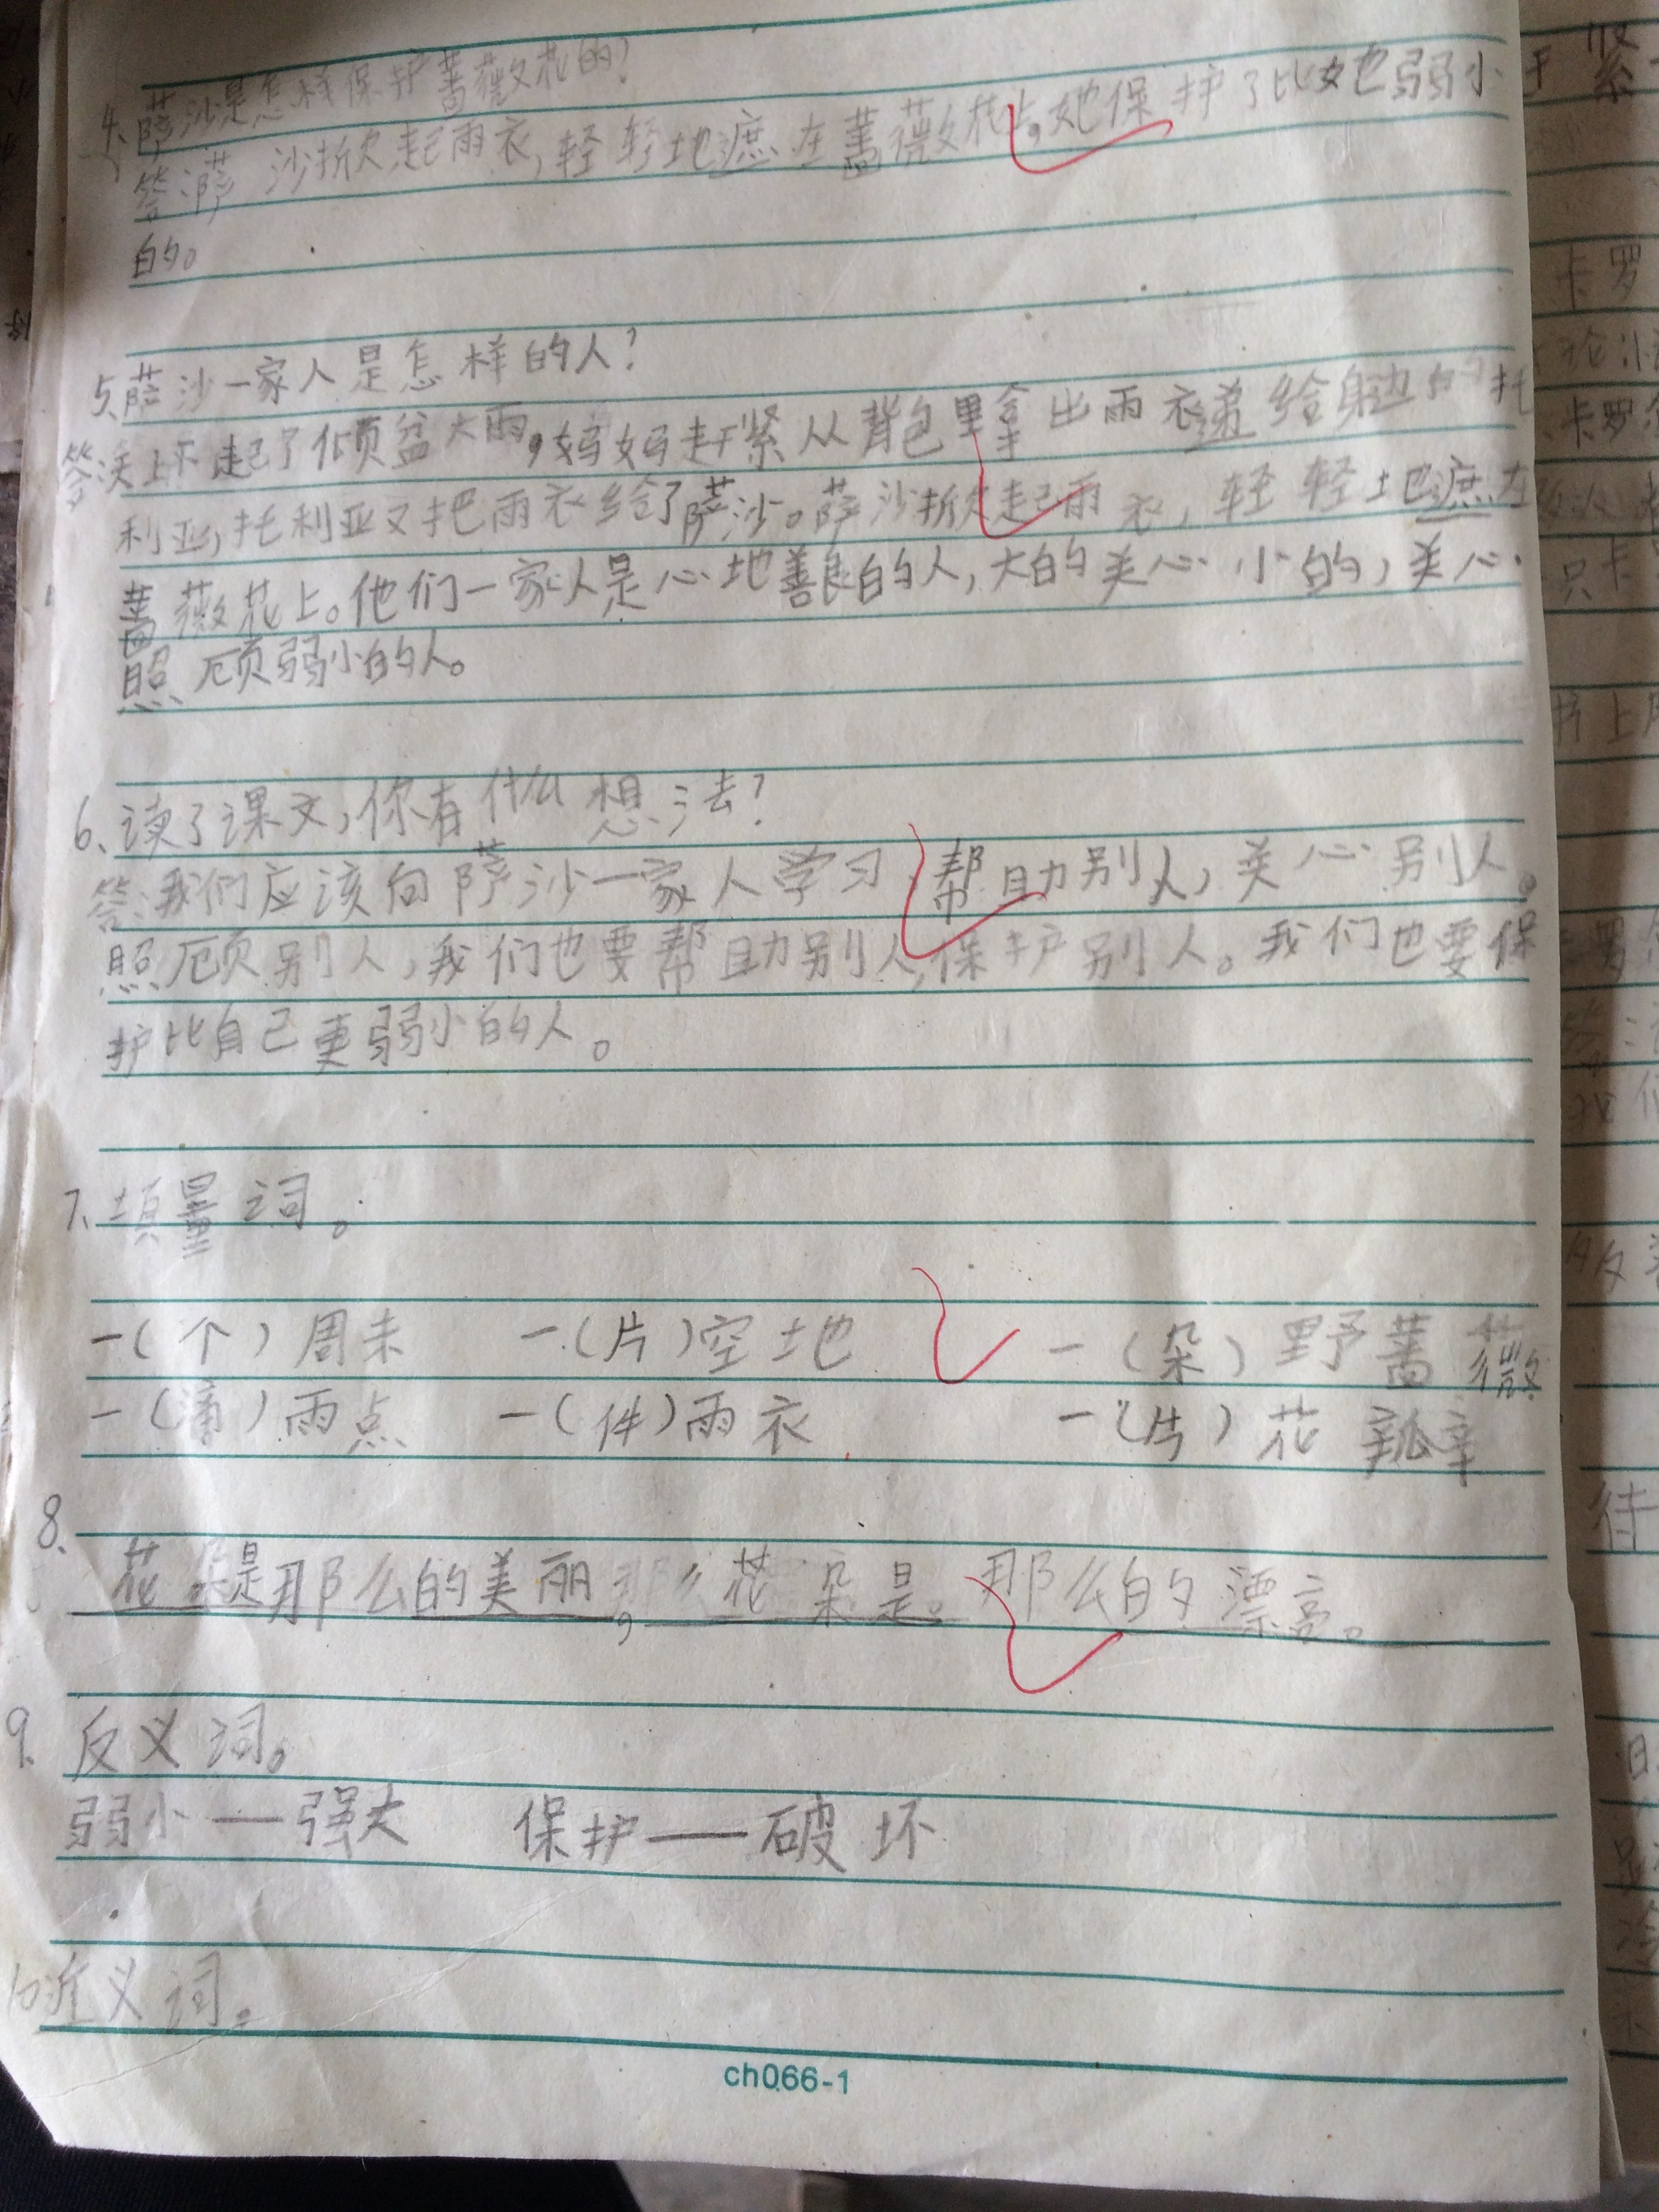 4、萨沙是怎样保护蔷薇花的?
答:萨沙掀起雨衣,轻轻地遮在蔷薇花上,她保护了比她弱小
的。
5、萨沙一家人是怎样的人?
答:天上下起了倾盆大雨,妈妈赶紧从背包里拿出雨衣递给身边的托
利亚,托利亚又把雨衣给了萨沙。萨沙掀起雨衣,轻轻地遮在
蔷薇花上。他们一家人是心地善良的人,大的关心小的,关心
照顾弱小的人。
6、读了课文,你有什么想法?
答:我们应该向萨沙一家人学习,帮助别人,关心别人。
照顾别人,我们也要帮助别人,保护别人。我们也要保
护比自己更弱小的人。
7、填量词。
一(个)周末 一(片)空地 一(朵)野蔷薇
一(滴)雨点 一(件)雨衣 一(片)花瓣
8、
花是那么的美丽,花朵是。那么的漂亮。
9、反义词。
弱小——强大 保护——破坏
10近义词。
ch066-1
卡罗
卡罗
只卡
书上
待